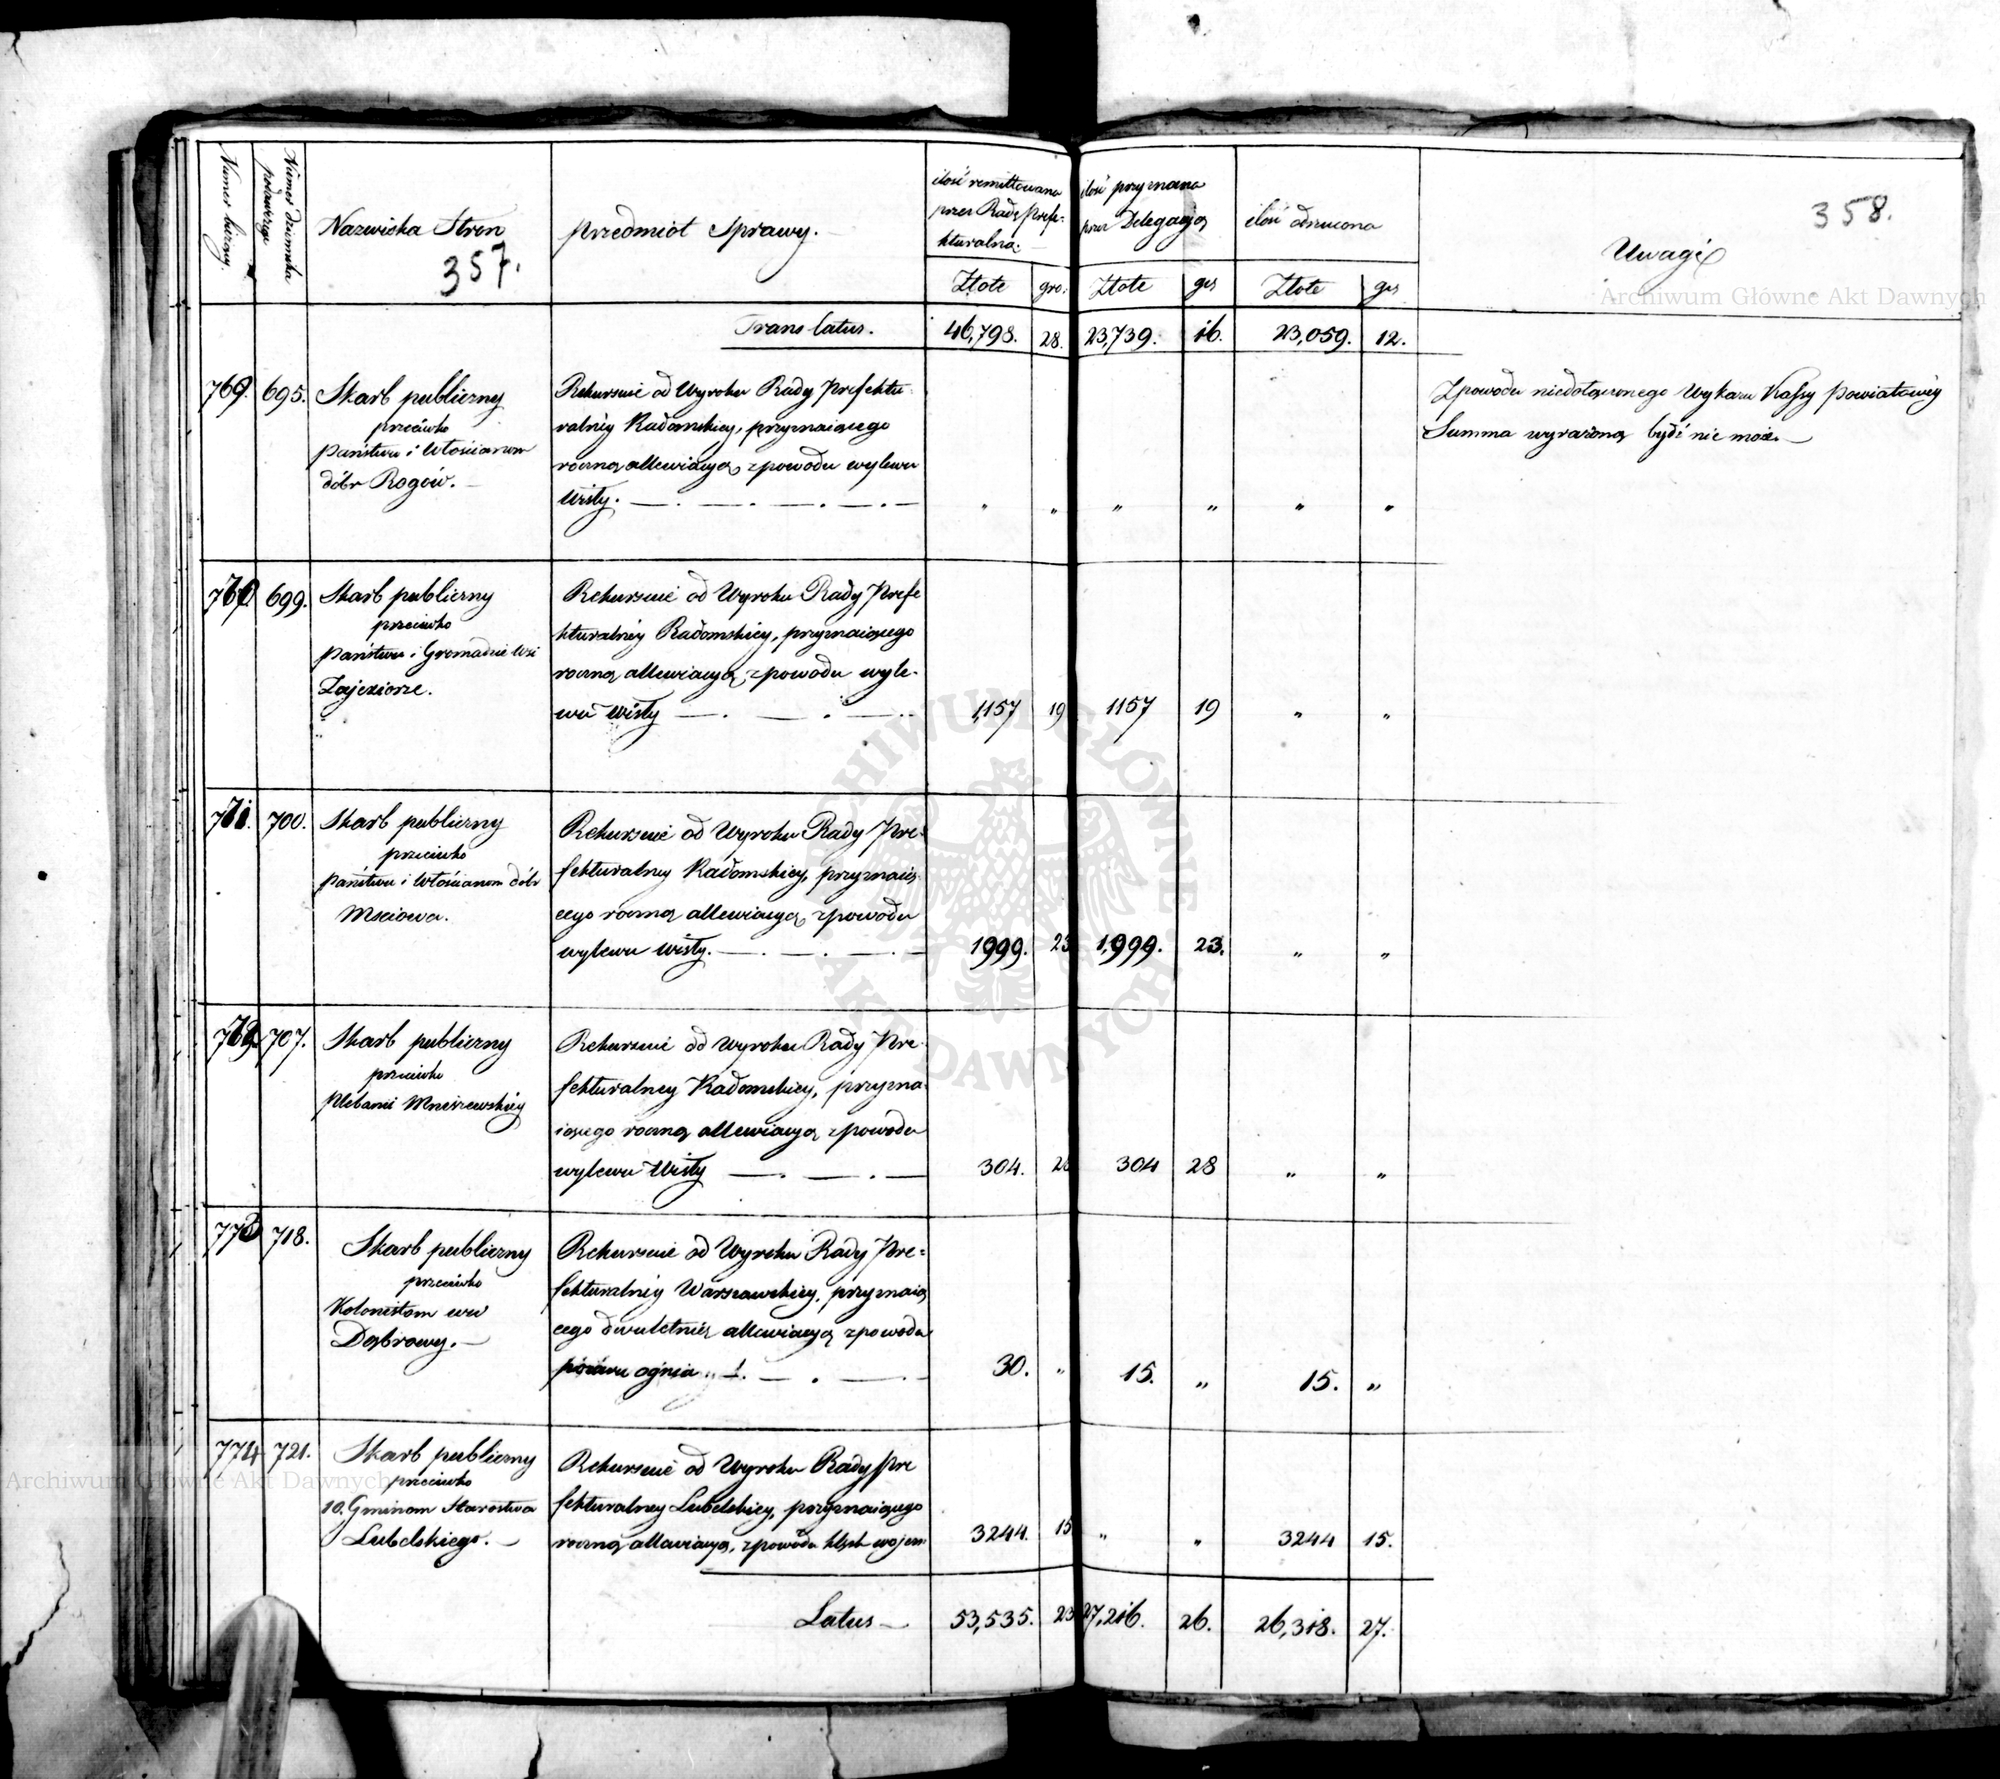 Numer bieżący.
Numer dziennika podawczego
Nazwiska Stron
357.
Przedmiot Sprawy.
ilość remittowana
przez Radę Prefe-
kturalną.
ilość przyznana
przez Delegacyą
ilość odrzucona
Uwagi
358.
Archiwum Główne Akt Dawnych
Złote gro: Złote grs Złote grs
Translatus. 46,798. 28. 23,739. 16. 23,059. 12.
769. 695. Skarb publiczny
przeciwko
Państwu i Włościanom
dóbr Rogów.
Rekursuie od Wyroku Rady Prefektu-
ralney Radomskiey, przyznaiącego
roczną allewiacyą z powodu wylewu
Wisły. — . — . — . — . —
" " " " " "
Z powodu niedołączonego Wykazu Kassy Powiatowey
Summa wyrażoną bydź nie może. —
770. 699. Skarb publiczny
przeciwko
Państwu i Gromadzie Wsi
Zajeziorze.
Rekursuie od Wyroku Rady Prefe
kturalney Radomskiey, przyznaiącego
roczną allewiacyą z powodu wyle-
wu Wisły — . — . — ..
1,157 19 1157 19 " "
771. 700. Skarb publiczny
przeciwko
Państwu i Włościanom dóbr
Msciowa.
Rekursuie od Wyroku Rady Pre-
fekturalney Radomskiey, przyznaią-
cego roczną allewiacyą z powodu
wylewu Wisły. — . — . — . —
1999. 23 1,999. 23. " "
772. 707. Skarb publiczny
przeciwko
Plebanii Mniszewskiey
Rekursuie od Wyroku Rady Pre-
fekturalney Radomskiey, przyzna-
iącego roczną allewiacyą z powodu
wylewu Wisły — . — . —
304. 28 304 28 " "
773 718. Skarb publiczny
przeciwko
Kolonistom wsi
Dąbrowy. —
Rekursuie od Wyroku Rady Pre=
fekturalney Warszawskiey, przyznaią
cego dwuletnią allewiacyą z powodu
pożaru ognia
30. " 15. " 15. "
774 721. Skarb publiczny
przeciwko
10. Gminom Starostwa
Lubelskiego. —
Rekursuie od Wyroku Rady Pre
fekturalney Lubelskiey, przyznaiącego
roczną allewiacyą, z powodu klęsk wojen
3244. 15 " " 3244 15.
Latus — 53,535. 23 27,216. 26. 26,318. 27.
Archiwum Główne Akt Dawnych
ARCHIWUM GŁÓWNE AKT DAWNYCH